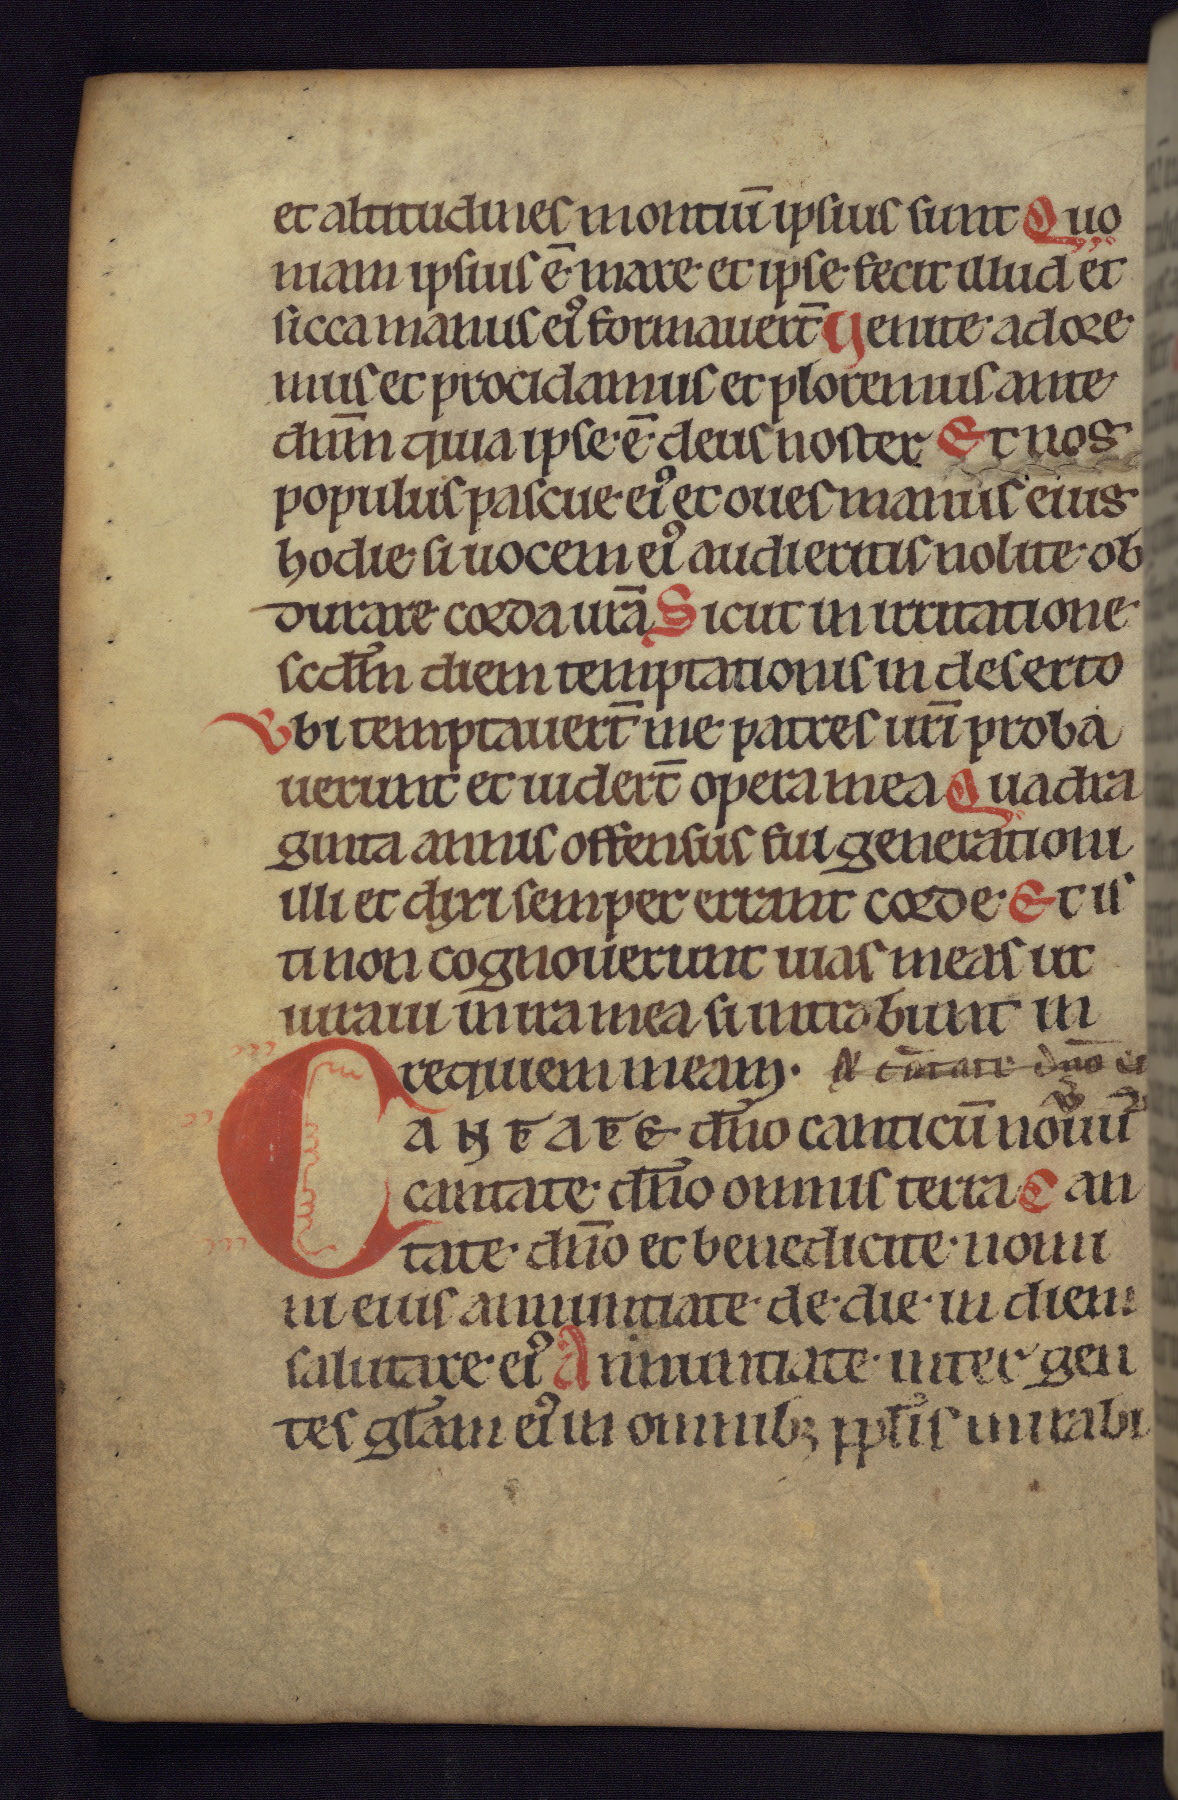 et altitudines montiū ipsius sunt Quo
niam ipsius ē mare et ipse fecit illud et
sicca manus eiꝰ formauert̄ Uenite adore
mus et procidamus et ploremus ante
dnm̄ quia ipse ē deus noster Et nos
populus pascue eiꝰ et oues manus eius
hodie si uocem eiꝰ audieritis nolite ob
durare corda ur̄a Sicut in irritatione
scdm̄ diem temptationis in deserto
Ubi temptauert̄ me patres ur̄i proba
uerunt et uidert̄ opera mea Quadra
ginta annis offensus fui generationi
illi et dixi semper errant corde Et is
ti non cognouerunt uias meas ut
iuraui in ira mea si intrabunt in
requiem meam. cātate dn̄o
CANTATE dn̄o canticū nouū
cantate dn̄o omnis terra Can
tate dn̄o et benedicite nomi
ni eius annuntiate de die in diem
salutare eiꝰ Annuntiate inter gen
tes glam̄ eiꝰ in omnibꝫ ppl̄is mirabi